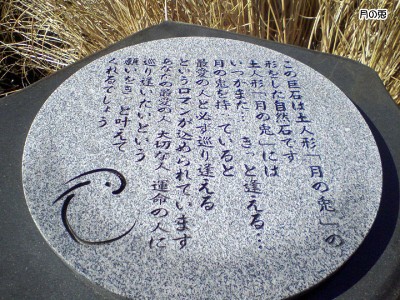 月の兎
この巨石は土人形「月の兎」の
形をした自然石です
土人形「月の兎」には
いつかまた… きっと逢える…
月の兎を持っていると
最愛の人と必ず巡り逢える
というロマンが込められています
あなたの最愛の人 大切な人 運命の人に
巡り逢いたいという
願いをきっと叶えて
くれるでしょう